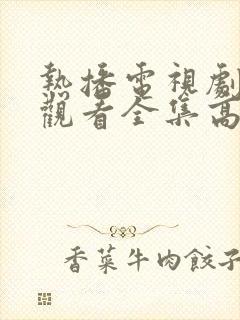 熱播電視劇
觀看全集高
香菜牛肉餃子